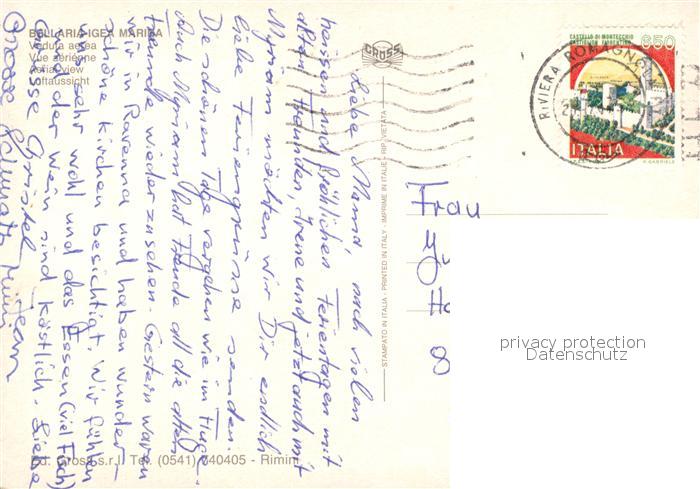 BELLARIA-IGEA MARINA
Veduta aerea
Vue aérienne
Aerial view
Luftaussicht
GROSS
Liebe Mama, nach vielen
heissen und fröhlichen Ferientagen mit
alten Freunden, Irene und jetzt auch mit
Myriam möchten wir Dir endlich
liebe Feriengrüsse senden.
Die schönen Tage vergehen wie im Fluge.
Auch Myriam hat Freude all die alten
Freunde wieder zu sehen. Gestern waren
wir in Ravenna und haben wunder-
schöne Kirchen besichtigt. Wir fühlen
uns sehr wohl und das Essen (viel Fisch)
und der Wein sind köstlich. Liebe
Grüsse Christel Jean
Grosse
Ed. Gross s.r.l. Tel. (0541) 740405 - Rimini
STAMPATO IN ITALIA - PRINTED IN ITALY - IMPRIME IN ITALIE - RIP. VIETATA
CASTELLO DI MONTECCHIO
CASTIGLION FIORENTINO
650
ITALIA
RIVIERA ROMAGNOLA
Frau
8
privacy protection
Datenschutz